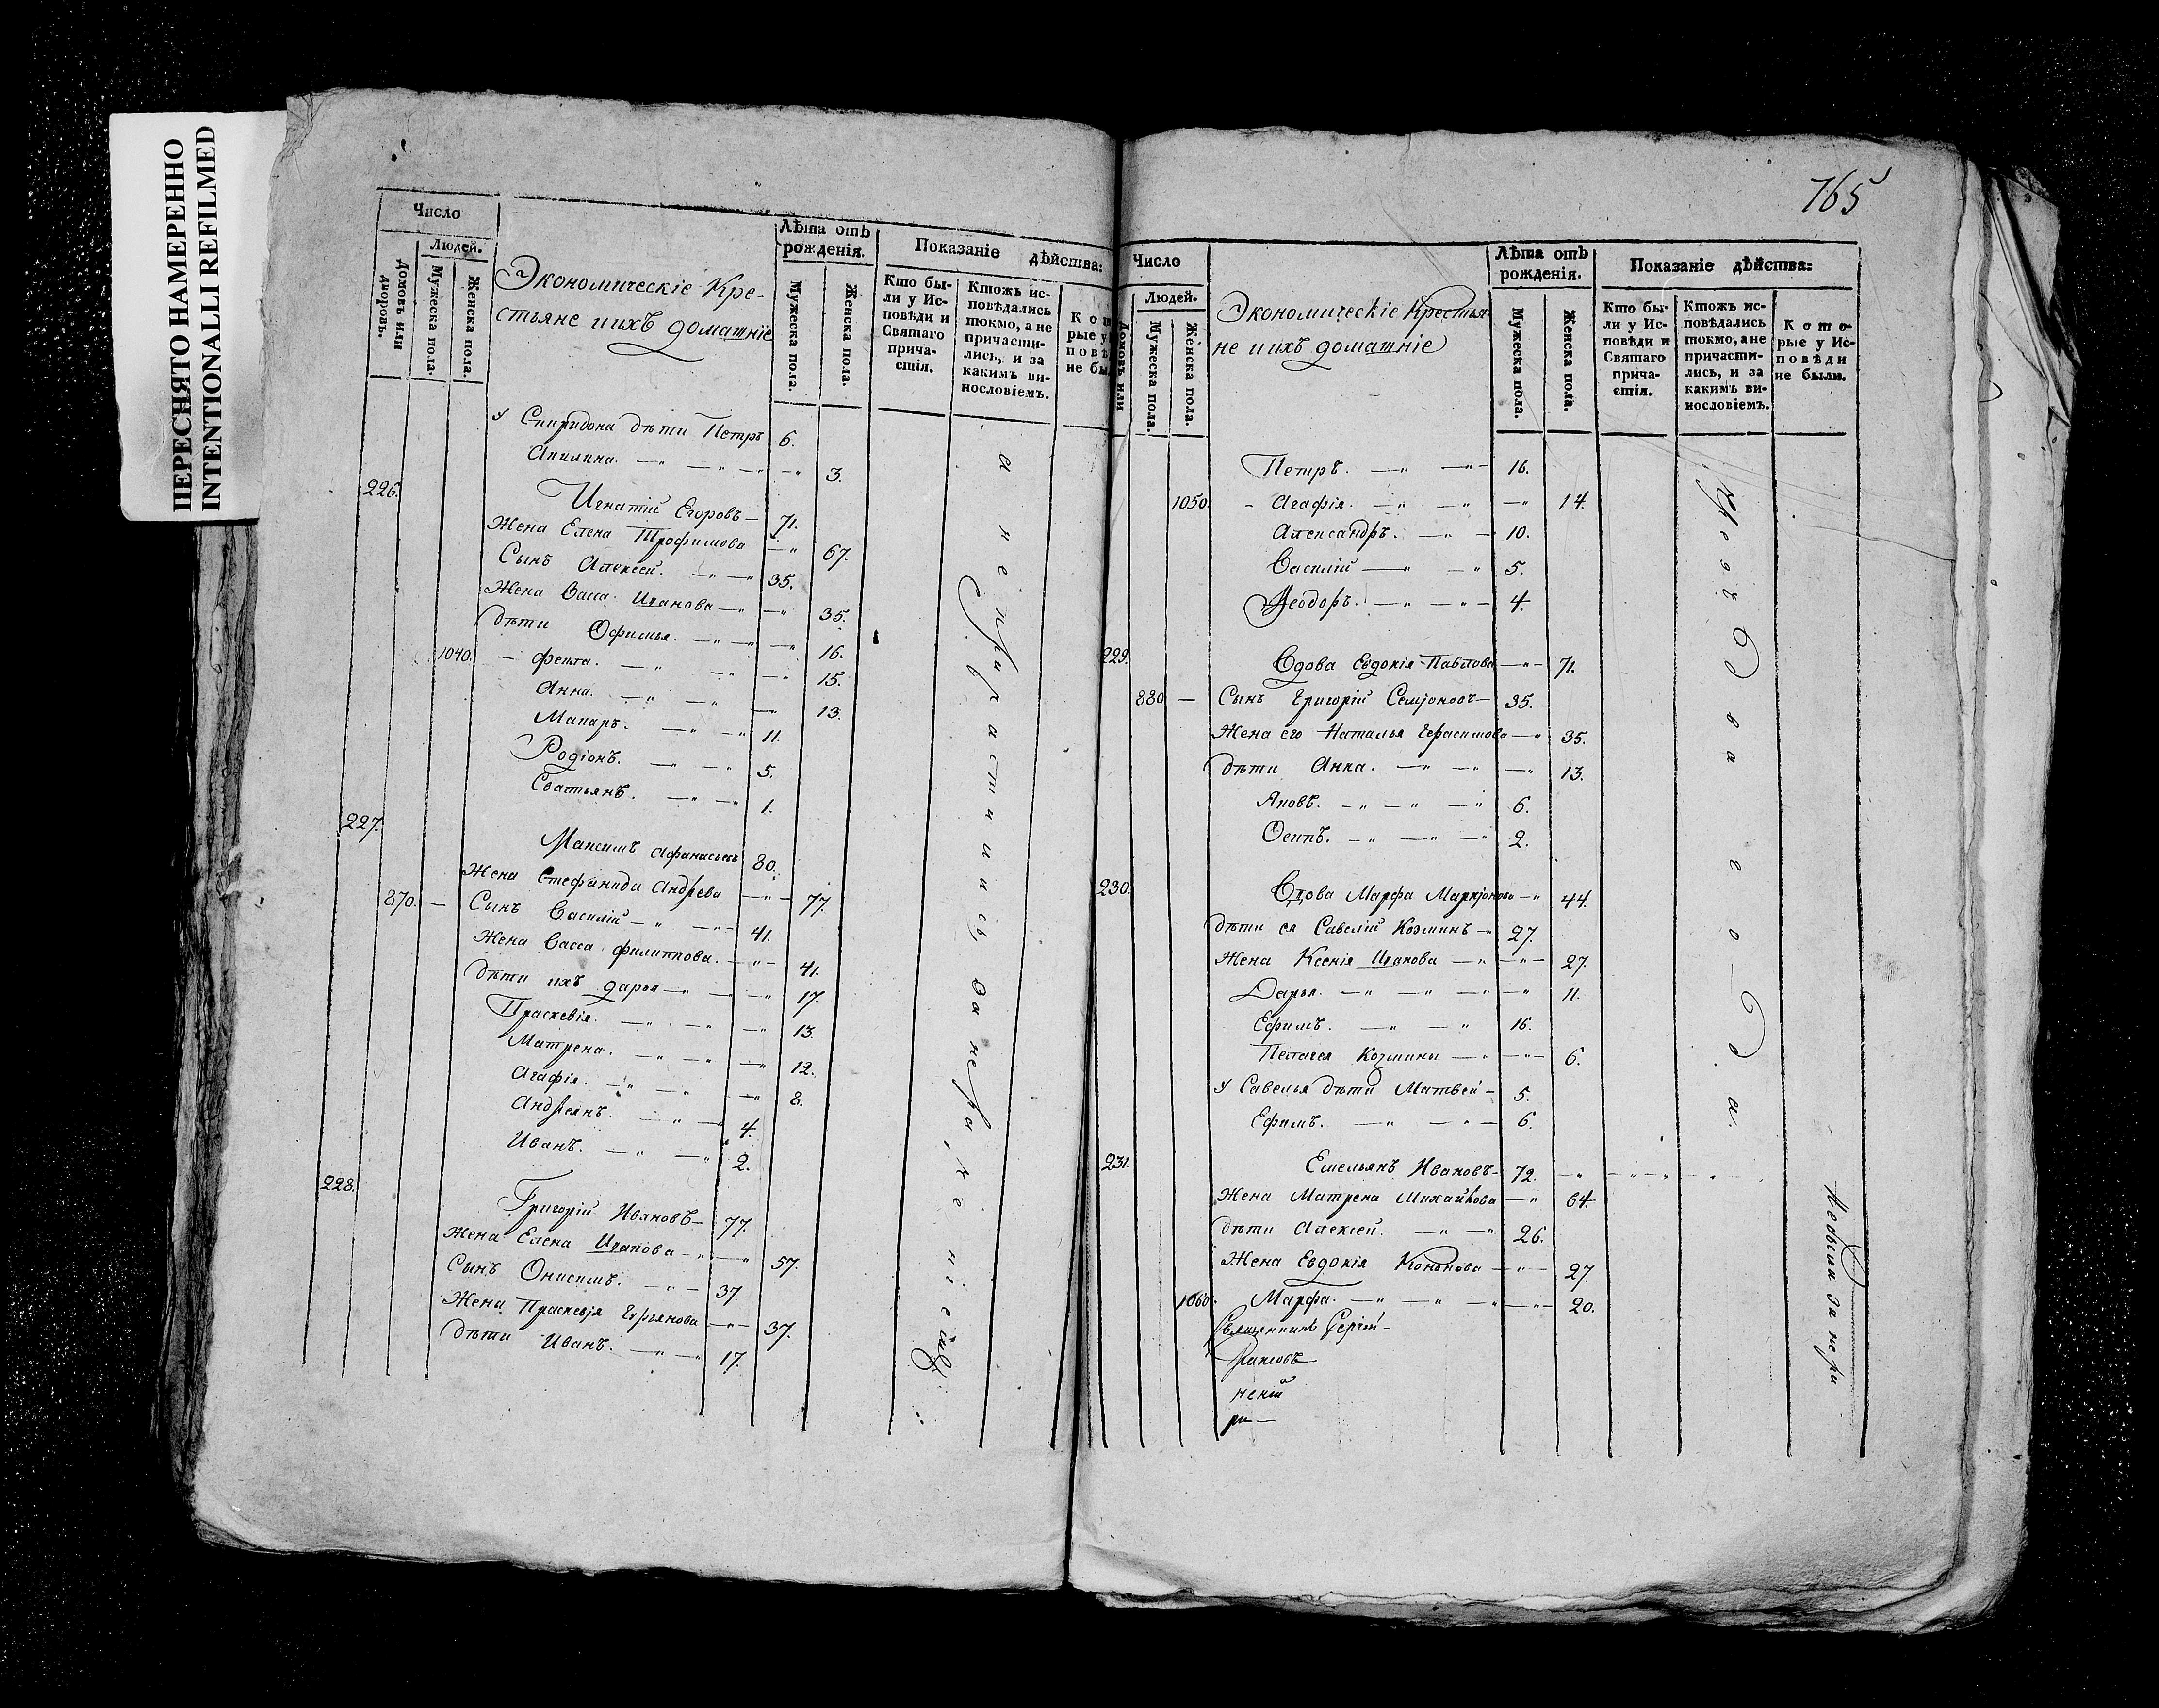 ПЕРЕСНЯТО НАМЕРЕННО
INTENTIONALLI REFILMED
Число
Людей.
Домовъ или дворовъ.
Мужеска пола.
Женска пола.
Экономическіе Кре-
стьяне и ихъ домашніе
Лѣта отъ рожденія.
Мужеска пола.
Женска пола.
Показаніе дѣйства:
Кто бы-
ли у Ис-
повѣди и
Святаго
прича-
стія.
Ктожъ ис-
повѣдались
токмо, а не
причасти-
лись, и за
какимъ ви-
нословіемъ.
у Спиридона дѣти Петръ 6.
Акилина. 3.
226. Игнатій Егоровъ 71.
Жена Елена Трофимова 67.
Сынъ Алексей. 35.
Жена Васса Иванова 35.
дѣти Офимья. 16.
1040. Фекла. 15.
Анна. 13.
Макаръ. 11.
Родіонъ. 5.
Савастьянъ. 1.
227. Максимъ Афанасьевъ 80.
Жена Стефанида Андреева 77.
870. Сынъ Василій 41.
Жена Васса Филиппова. 41.
дѣти ихъ дарья 17.
Праскевія. 13.
Матрена. 12.
Агафія. 8.
Андреянъ. 4.
Иванъ. 2.
228. Григорій Ивановъ 77.
Жена Елена Иванова 57.
Сынъ Онисимъ. 37.
Жена Праскевія Гурьянова 37.
дѣти Иванъ. 17.
а не причастились за нераченіемъ
765
Число
Людей.
Домовъ или
Мужеска пола.
Женска пола.
Экономическіе Крестья-
не и ихъ домашніе
Лѣта отъ рожденія.
Мужеска пола.
Женска пола.
Показаніе дѣйства:
Кто бы-
ли у Ис-
повѣди и
Святаго
прича-
стія.
Ктожъ ис-
повѣдались
токмо, а не
причасти-
лись, и за
какимъ ви-
нословіемъ.
Кото-
рые у Ис-
повѣди
не были.
Петръ. 16.
1050. Агафія. 14.
Александръ. 10.
Василій 5.
Ѳеодоръ. 4.
229. Вдова Евдокія Павлова 71.
880 Сынъ Григорій Семіоновъ 35.
Жена его Наталья Герасимова 35.
дѣти Анна. 13.
Яковъ. 6.
Осипъ. 2.
230. Вдова Марфа Маркіонова 44.
дѣти ея Савелій Козминъ 27.
Жена Ксенія Иванова 27.
Дарья. 11.
Ефимъ. 16.
Пелагея Козмины 6.
у Савелья дѣти Матвей 5.
Ефимъ. 6.
231. Емельянъ Ивановъ 72.
Жена Матрена Михайлова 64.
дѣти Алексей. 26.
Жена Евдокія Кононова 27.
1060. Марфа. 20.
Священникъ Сергій